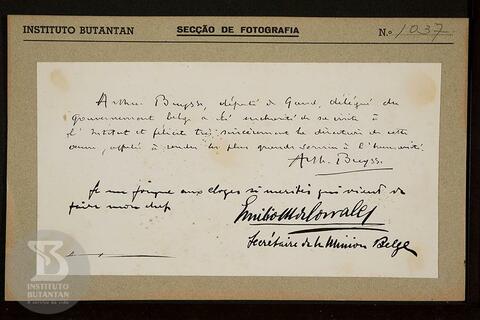 INSTITUTO BUTANTAN
SECÇÃO DE FOTOGRAFIA
N.º 1037
Arthur Buysse, député de Gand, délégué du
gouvernement belge a été enchanté de sa visite à
l'Institut et félicite très sincèrement le directeur de cette
œuvre, appelée à rendre les plus grands services à l'humanité.
Arth. Buysse
Je me joins aux éloges si mérités qui vient de
faire mon chef
Secrétaire de la Mission Belge
INSTITUTO
BUTANTAN
A serviço da vida